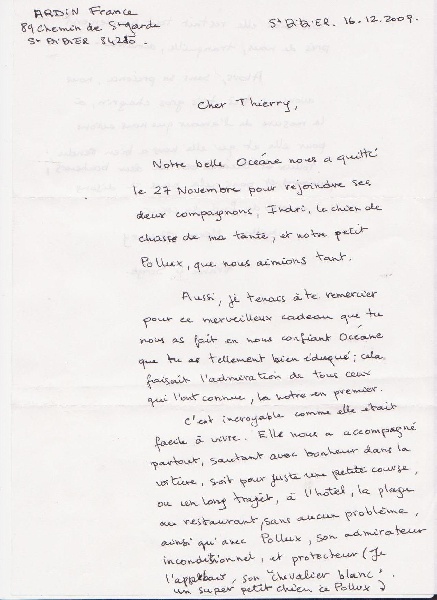 ARDIN France
89 Chemin de St garde
St DIDIER 84210.
St DIDIER. 16.12.2009.
Cher Thierry,
Notre belle Océane nous a quitté
le 27 Novembre pour rejoindre ses
deux compagnons, Indri, le chien de
chasse de ma tante, et notre petit
Pollux, que nous aimions tant.
Aussi, je tenais à te remercier
pour ce merveilleux cadeau que tu
nous as fait en nous confiant Océane
que tu as tellement bien éduqué ; cela
faisait l'admiration de tous ceux
qui l'ont connue, la notre en premier.
C'est incroyable comme elle était
facile à vivre. Elle nous a accompagné
partout, sautant avec bonheur dans la
voiture, soit pour juste une petite course,
ou un long trajet, à l'hôtel, la plage
au restaurant, sans aucun problème,
ainsi qu'avec Pollux, son admirateur
inconditionnel, et protecteur (Je
l'appelais, son "chevalier blanc".
un super petit chien ce Pollux)